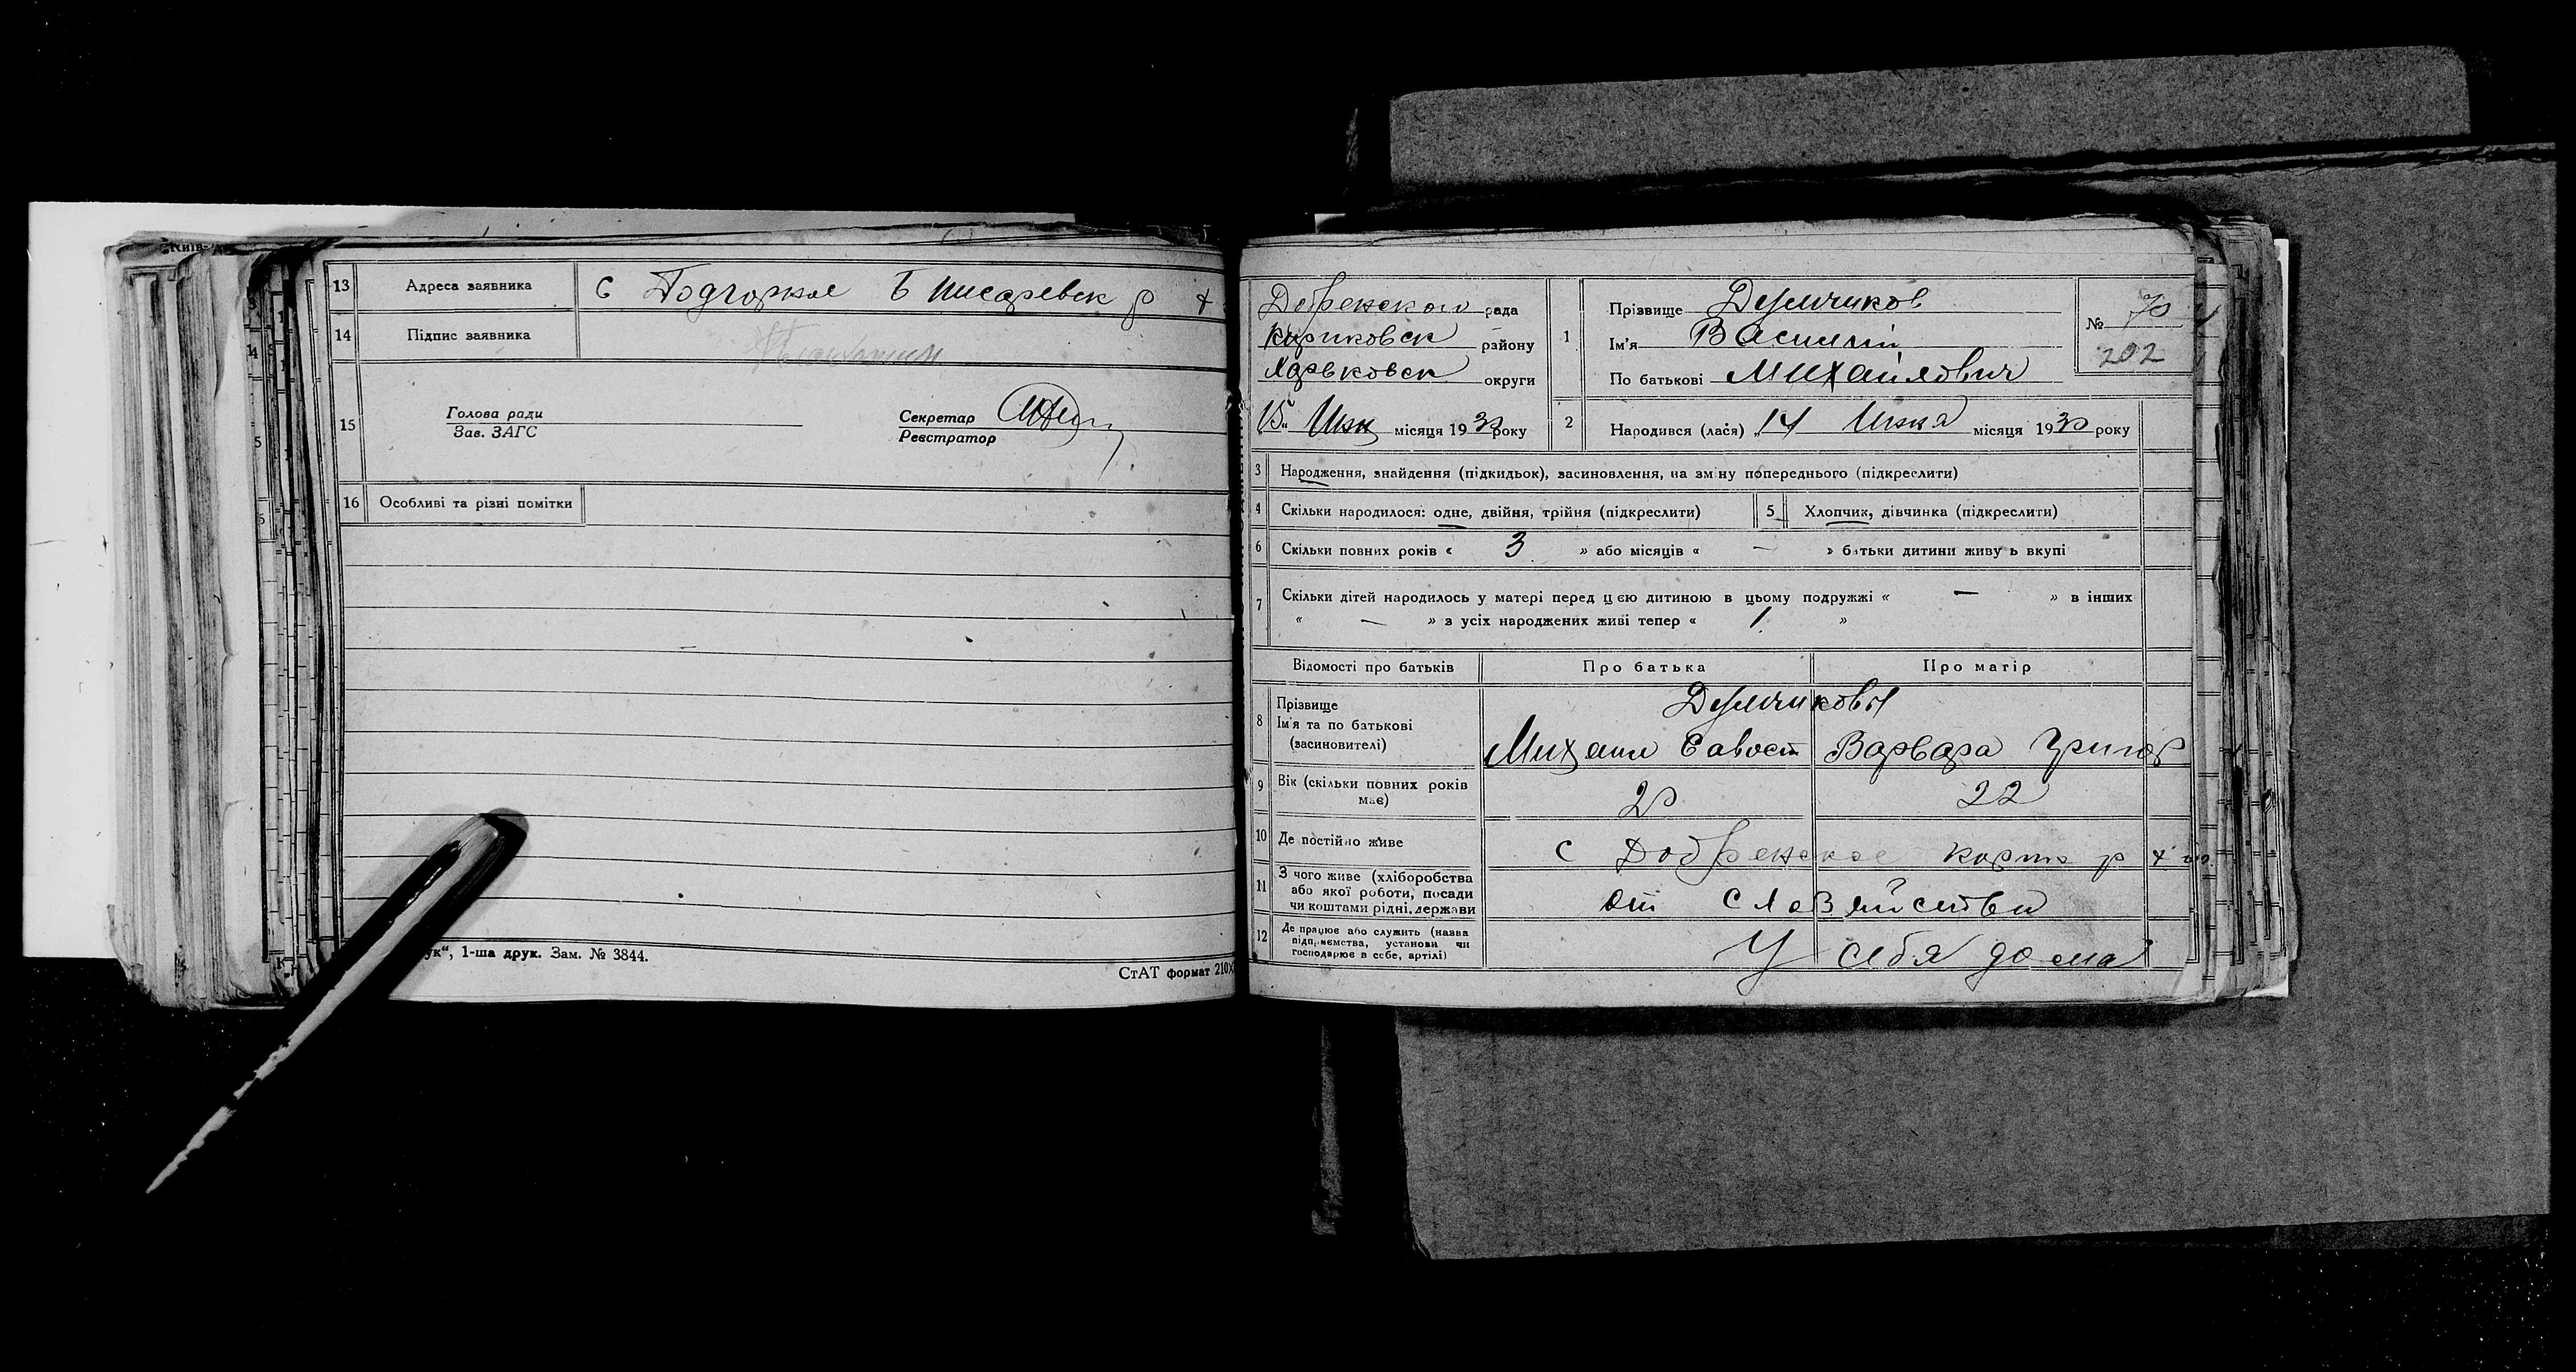 Київ-
13 Адреса заявника с Подгорное Б Писаревск р Х
14 Підпис заявника
15 Голова ради
Зав. ЗАГС
Секретар
Реєстратор
16 Особливі та різні помітки
ук“, 1-ша друк. Зам. № 3844.
СтАТ формат 210Х
рада
району
Харьковск округи
„15“ Июня місяця 1930 року
1 Прізвище Демчиков
Ім'я Василий
По батькові Михайлович
№ 70
202
2 Народився (лася) „14 Июня місяця 1930 року
3 Народження, знайдення (підкидьок), засиновлення, на зміну попереднього (підкреслити)
4 Скільки народилося: одне, двійня, трійня (підкреслити)
5 Хлопчик, дівчинка (підкреслити)
6 Скільки повних років « 3 » або місяців « — » батьки дитини живуть вкупі
7 Скільки дітей народилось у матері перед цією дитиною в цьому подружжі « — » в інших
« — » з усіх народжених живі тепер « 1 »
Відомості про батьків Про батька Про матір
8 Прізвище
Ім'я та по батькові
(засиновителі)
Демчиковы
Михаил Савост Варвара Григор
9 Вік (скільки повних років
має)
20 22
10 Де постійно живе с Добренское р
11 З чого живе (хліборобства
або якої роботи, посади
чи коштами рідні, держави
от
12 Де працює або служить (назва
підприємства, установи чи
господарює в себе, артілі)
У себя дома